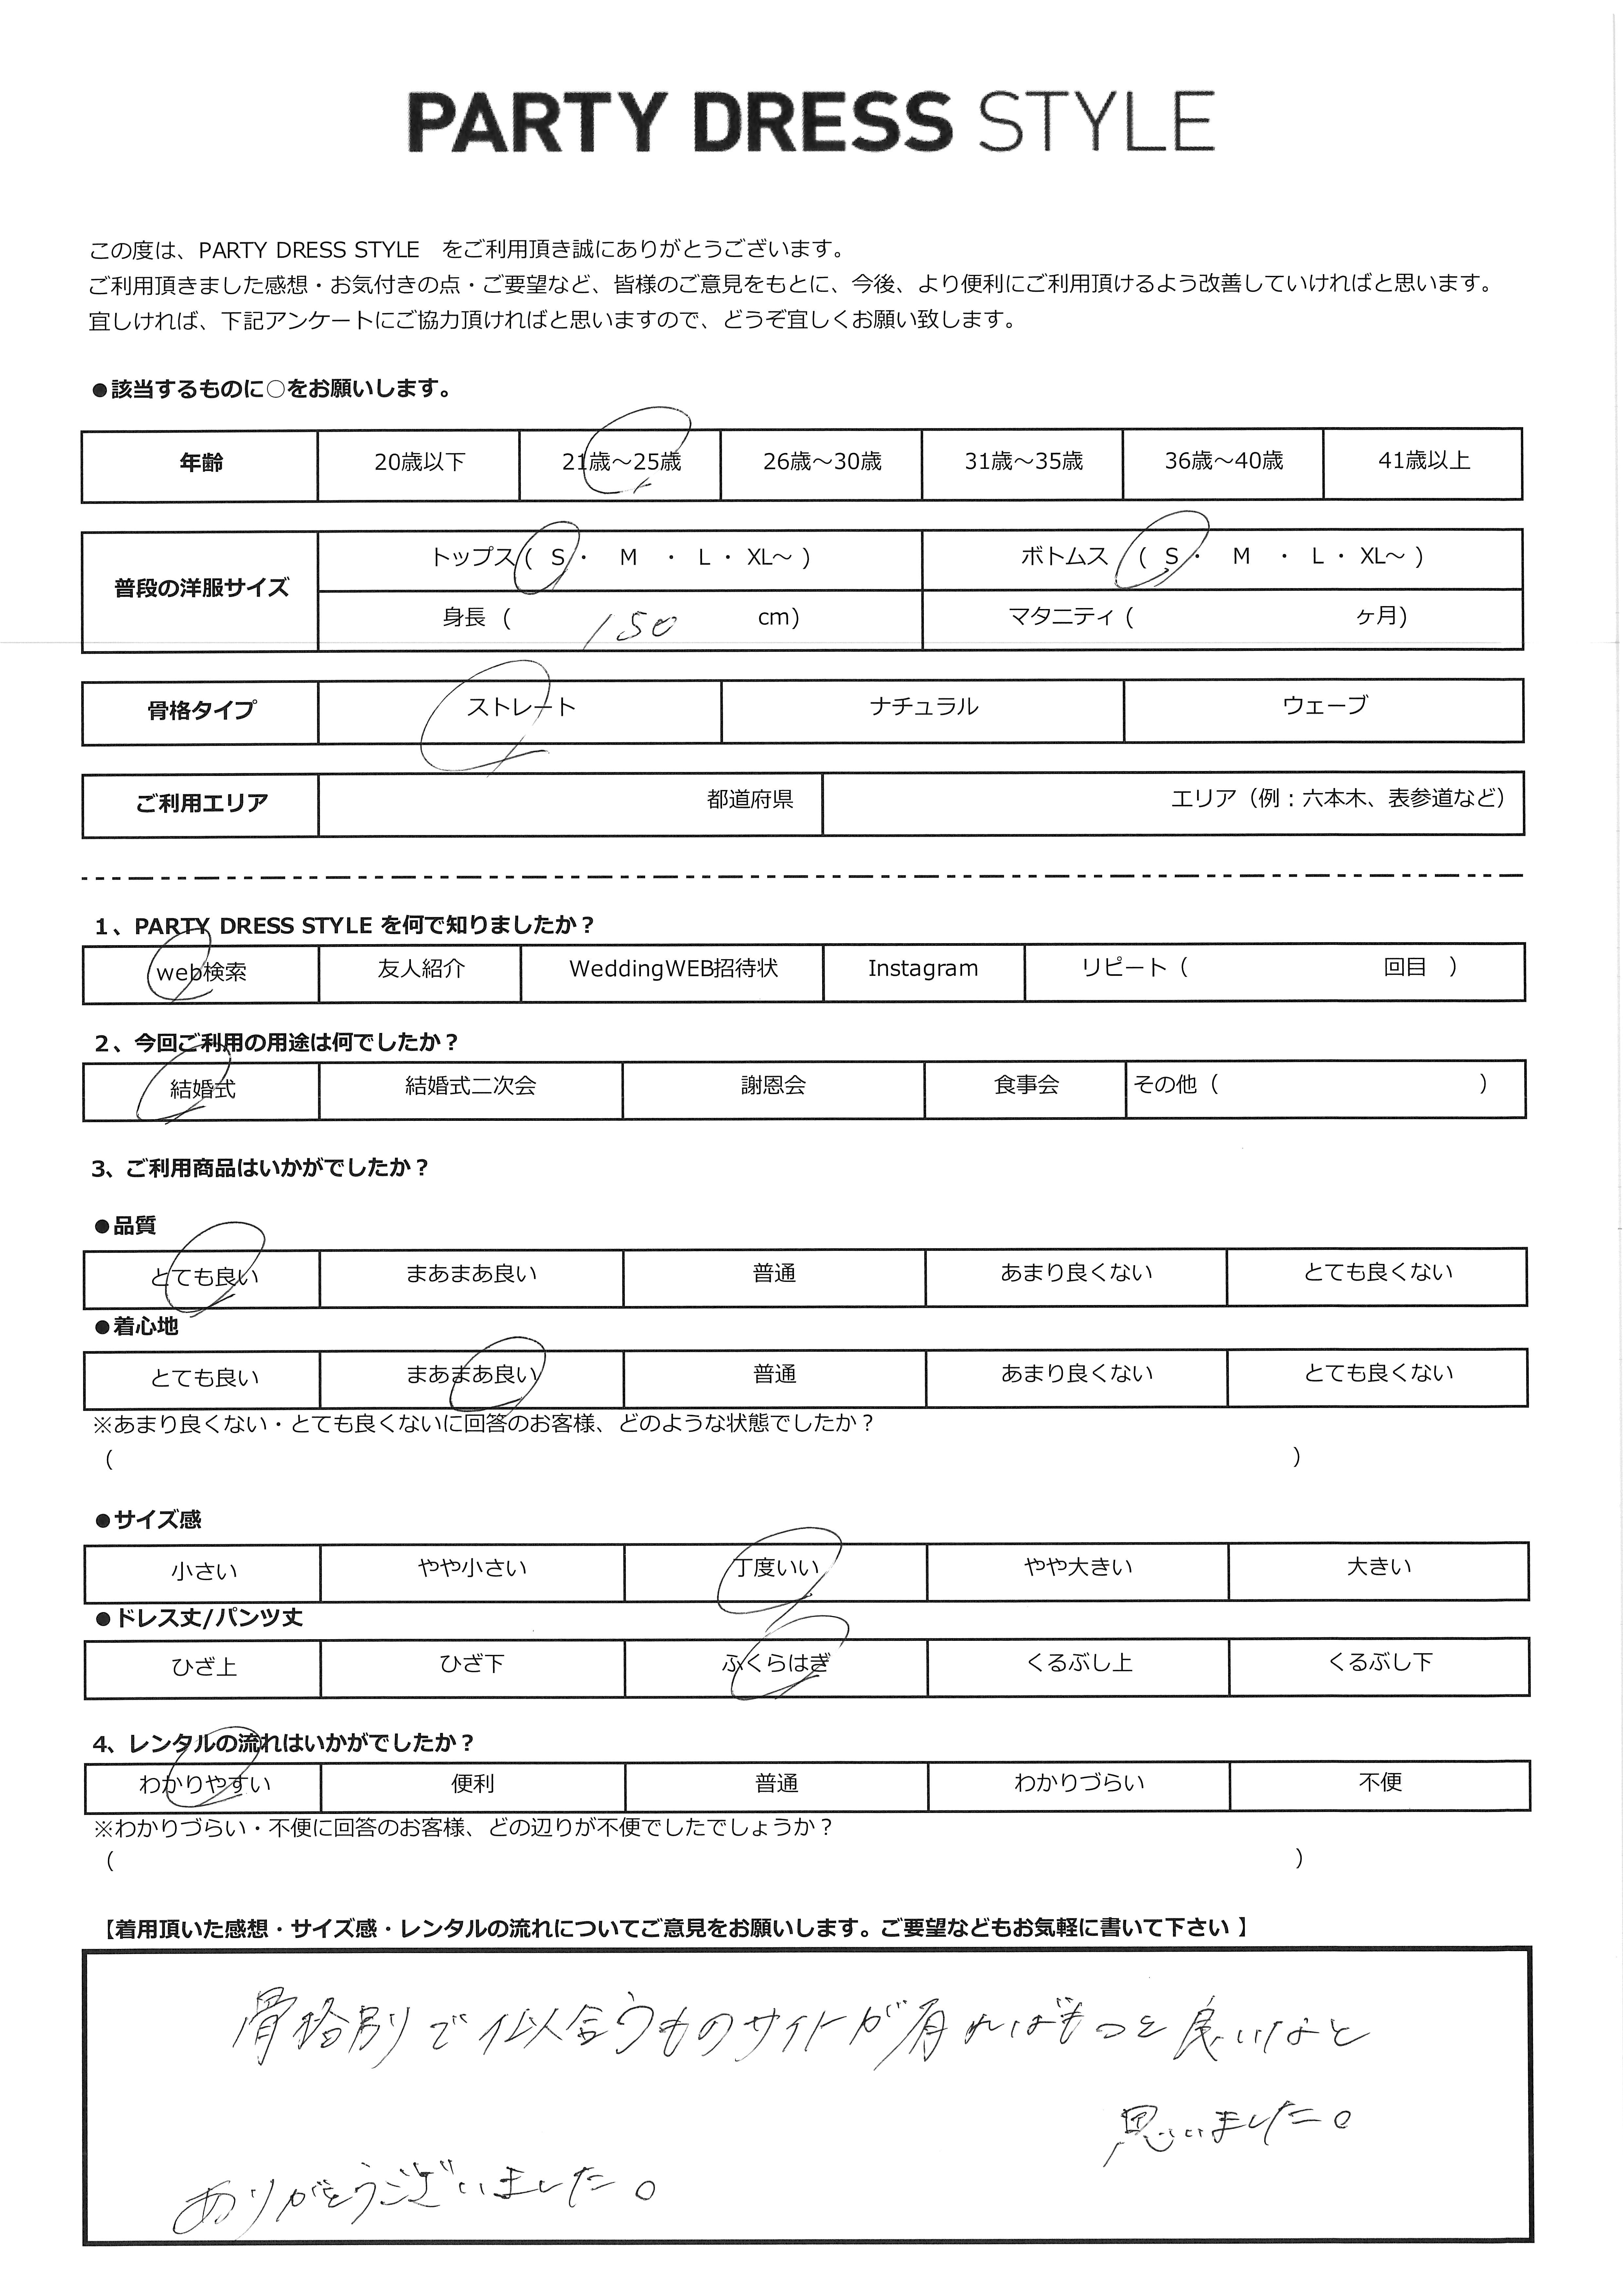 PARTY DRESS STYLE
この度は、PARTY DRESS STYLE　をご利用頂き誠にありがとうございます。
ご利用頂きました感想・お気付きの点・ご要望など、皆様のご意見をもとに、今後、より便利にご利用頂けるよう改善していければと思います。
宜しければ、下記アンケートにご協力頂ければと思いますので、どうぞ宜しくお願い致します。
●該当するものに○をお願いします。
年齢 20歳以下 21歳～25歳 26歳～30歳 31歳～35歳 36歳～40歳 41歳以上
普段の洋服サイズ
トップス（ S ・ M ・ L ・ XL～ ） ボトムス （ S ・ M ・ L ・ XL～ ）
身長（ 150 cm） マタニティ（ ヶ月）
骨格タイプ ストレート ナチュラル ウェーブ
ご利用エリア 都道府県 エリア（例：六本木、表参道など）
1、PARTY DRESS STYLE を何で知りましたか？
web検索 友人紹介 WeddingWEB招待状 Instagram リピート（ 回目 ）
2、今回ご利用の用途は何でしたか？
結婚式 結婚式二次会 謝恩会 食事会 その他（ ）
3、ご利用商品はいかがでしたか？
●品質
とても良い まあまあ良い 普通 あまり良くない とても良くない
●着心地
とても良い まあまあ良い 普通 あまり良くない とても良くない
※あまり良くない・とても良くないに回答のお客様、どのような状態でしたか？
（ ）
●サイズ感
小さい やや小さい 丁度いい やや大きい 大きい
●ドレス丈/パンツ丈
ひざ上 ひざ下 ふくらはぎ くるぶし上 くるぶし下
4、レンタルの流れはいかがでしたか？
わかりやすい 便利 普通 わかりづらい 不便
※わかりづらい・不便に回答のお客様、どの辺りが不便でしたでしょうか？
（ ）
【着用頂いた感想・サイズ感・レンタルの流れについてご意見をお願いします。ご要望などもお気軽に書いて下さい 】
骨格別で似合うものサイトが有ればもっと良いなと
思いました。
ありがとうございました。